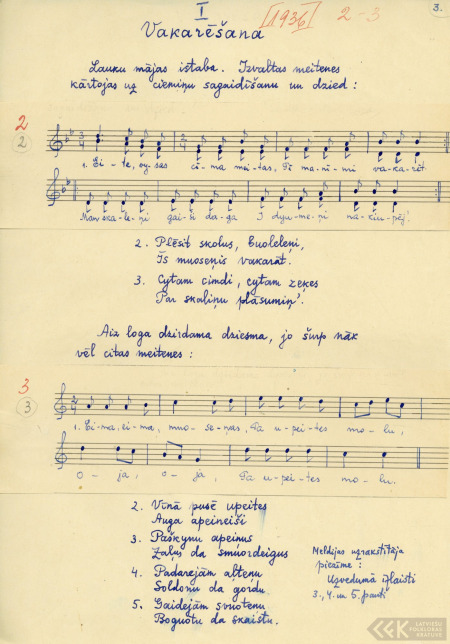 I
[1936] 2-3
3.
Vakarēšana
Lauku mājas istaba. Izvaltas meitenes
kārtojas uz ciemiņu sagaidīšanu un dzied:
2
2
1. Ei-te, oysas ci-ma mei-tas, Pi ma-ni-mi va-ka-rēt.
Man ska-le-ņi gai-ši dag-a I dyu-me-ņi na-kiu-pēj'.
2. Plēsit skolus, buoleleņi,
Is muoseņis vakarāt.
3. Cytam cimdi, cytam zeķes
Par skaliņu plāsumiņ'.
Aiz loga dzirdama dziesma, jo šurp nāk
vēl citas meitenes:
3
3
1. Ei-ma, ei-ma, muo-se-ņas, Pā u-pei-tes mo-lu,
O-ja, o-ja, Pā u-pei-tes mo-lu.
2. Vīnā pusē upeites
Auga apeineiši
3. Paškynu apeinus
Zaļus da smuordeigus
4. Padarejām alteņu
Soldonu da gordu
5. Gaidejām svuoteņu
Boguotu da skaistu.
Meldijas uzrakstītāja
piezīme:
Uzvedumā izlaisti
3., 4. un 5. panti
LFK
LATVIEŠU
FOLKLORAS
KRĀTUVE